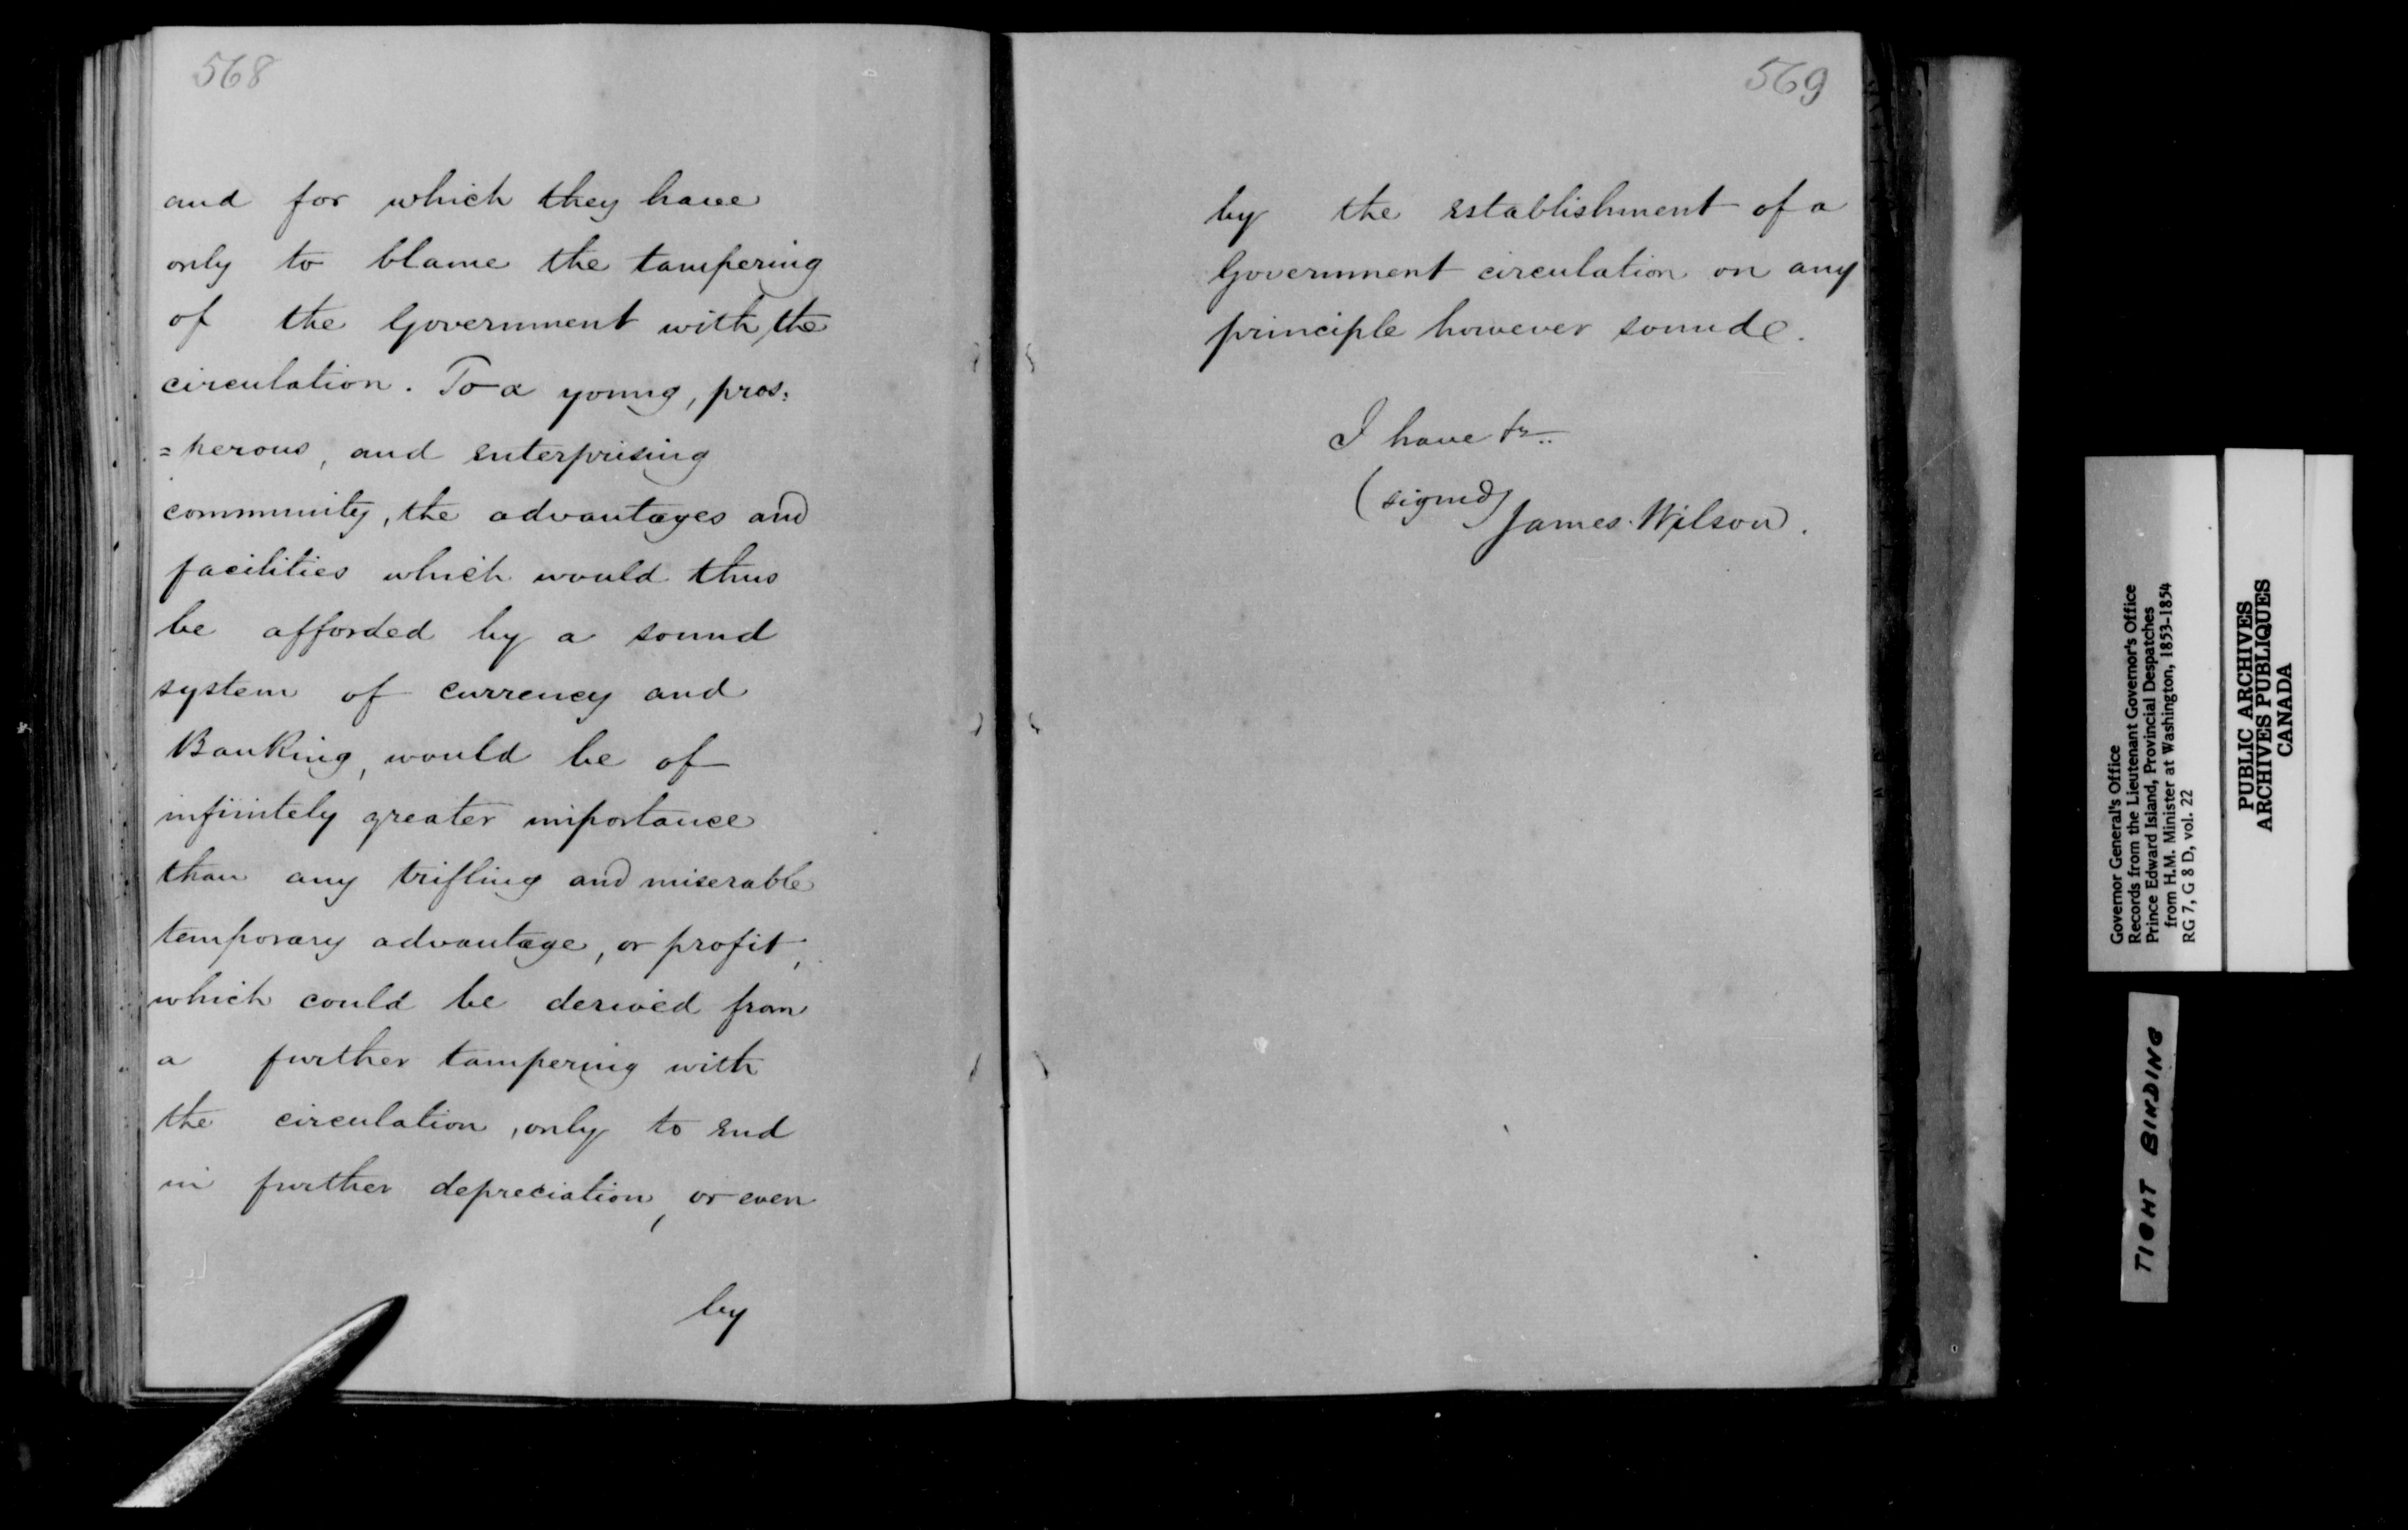 568
and for which they have
only to blame the tampering
of the Government with the
circulation. To a young, pros=
=perous, and enterprising
community, the advantages and
facilities which would thus
be afforded by a sound
system of currency and
Banking, would be of
infinitely greater importance
than any trifling and miserable
temporary advantage, or profit,
which could be derived from
a further tampering with
the circulation, only to end
in further depreciation, or even
by
569
by the establishment of a
Government circulation on any
principle however sound.
I have &c.
(signed) James Wilson.
Governor General's Office
Records from the Lieutenant Governor's Office
Prince Edward Island, Provincial Despatches
from H.M. Minister at Washington, 1853-1854
RG 7, G 8 D, vol. 22
PUBLIC ARCHIVES
ARCHIVES PUBLIQUES
CANADA
TIGHT BINDING